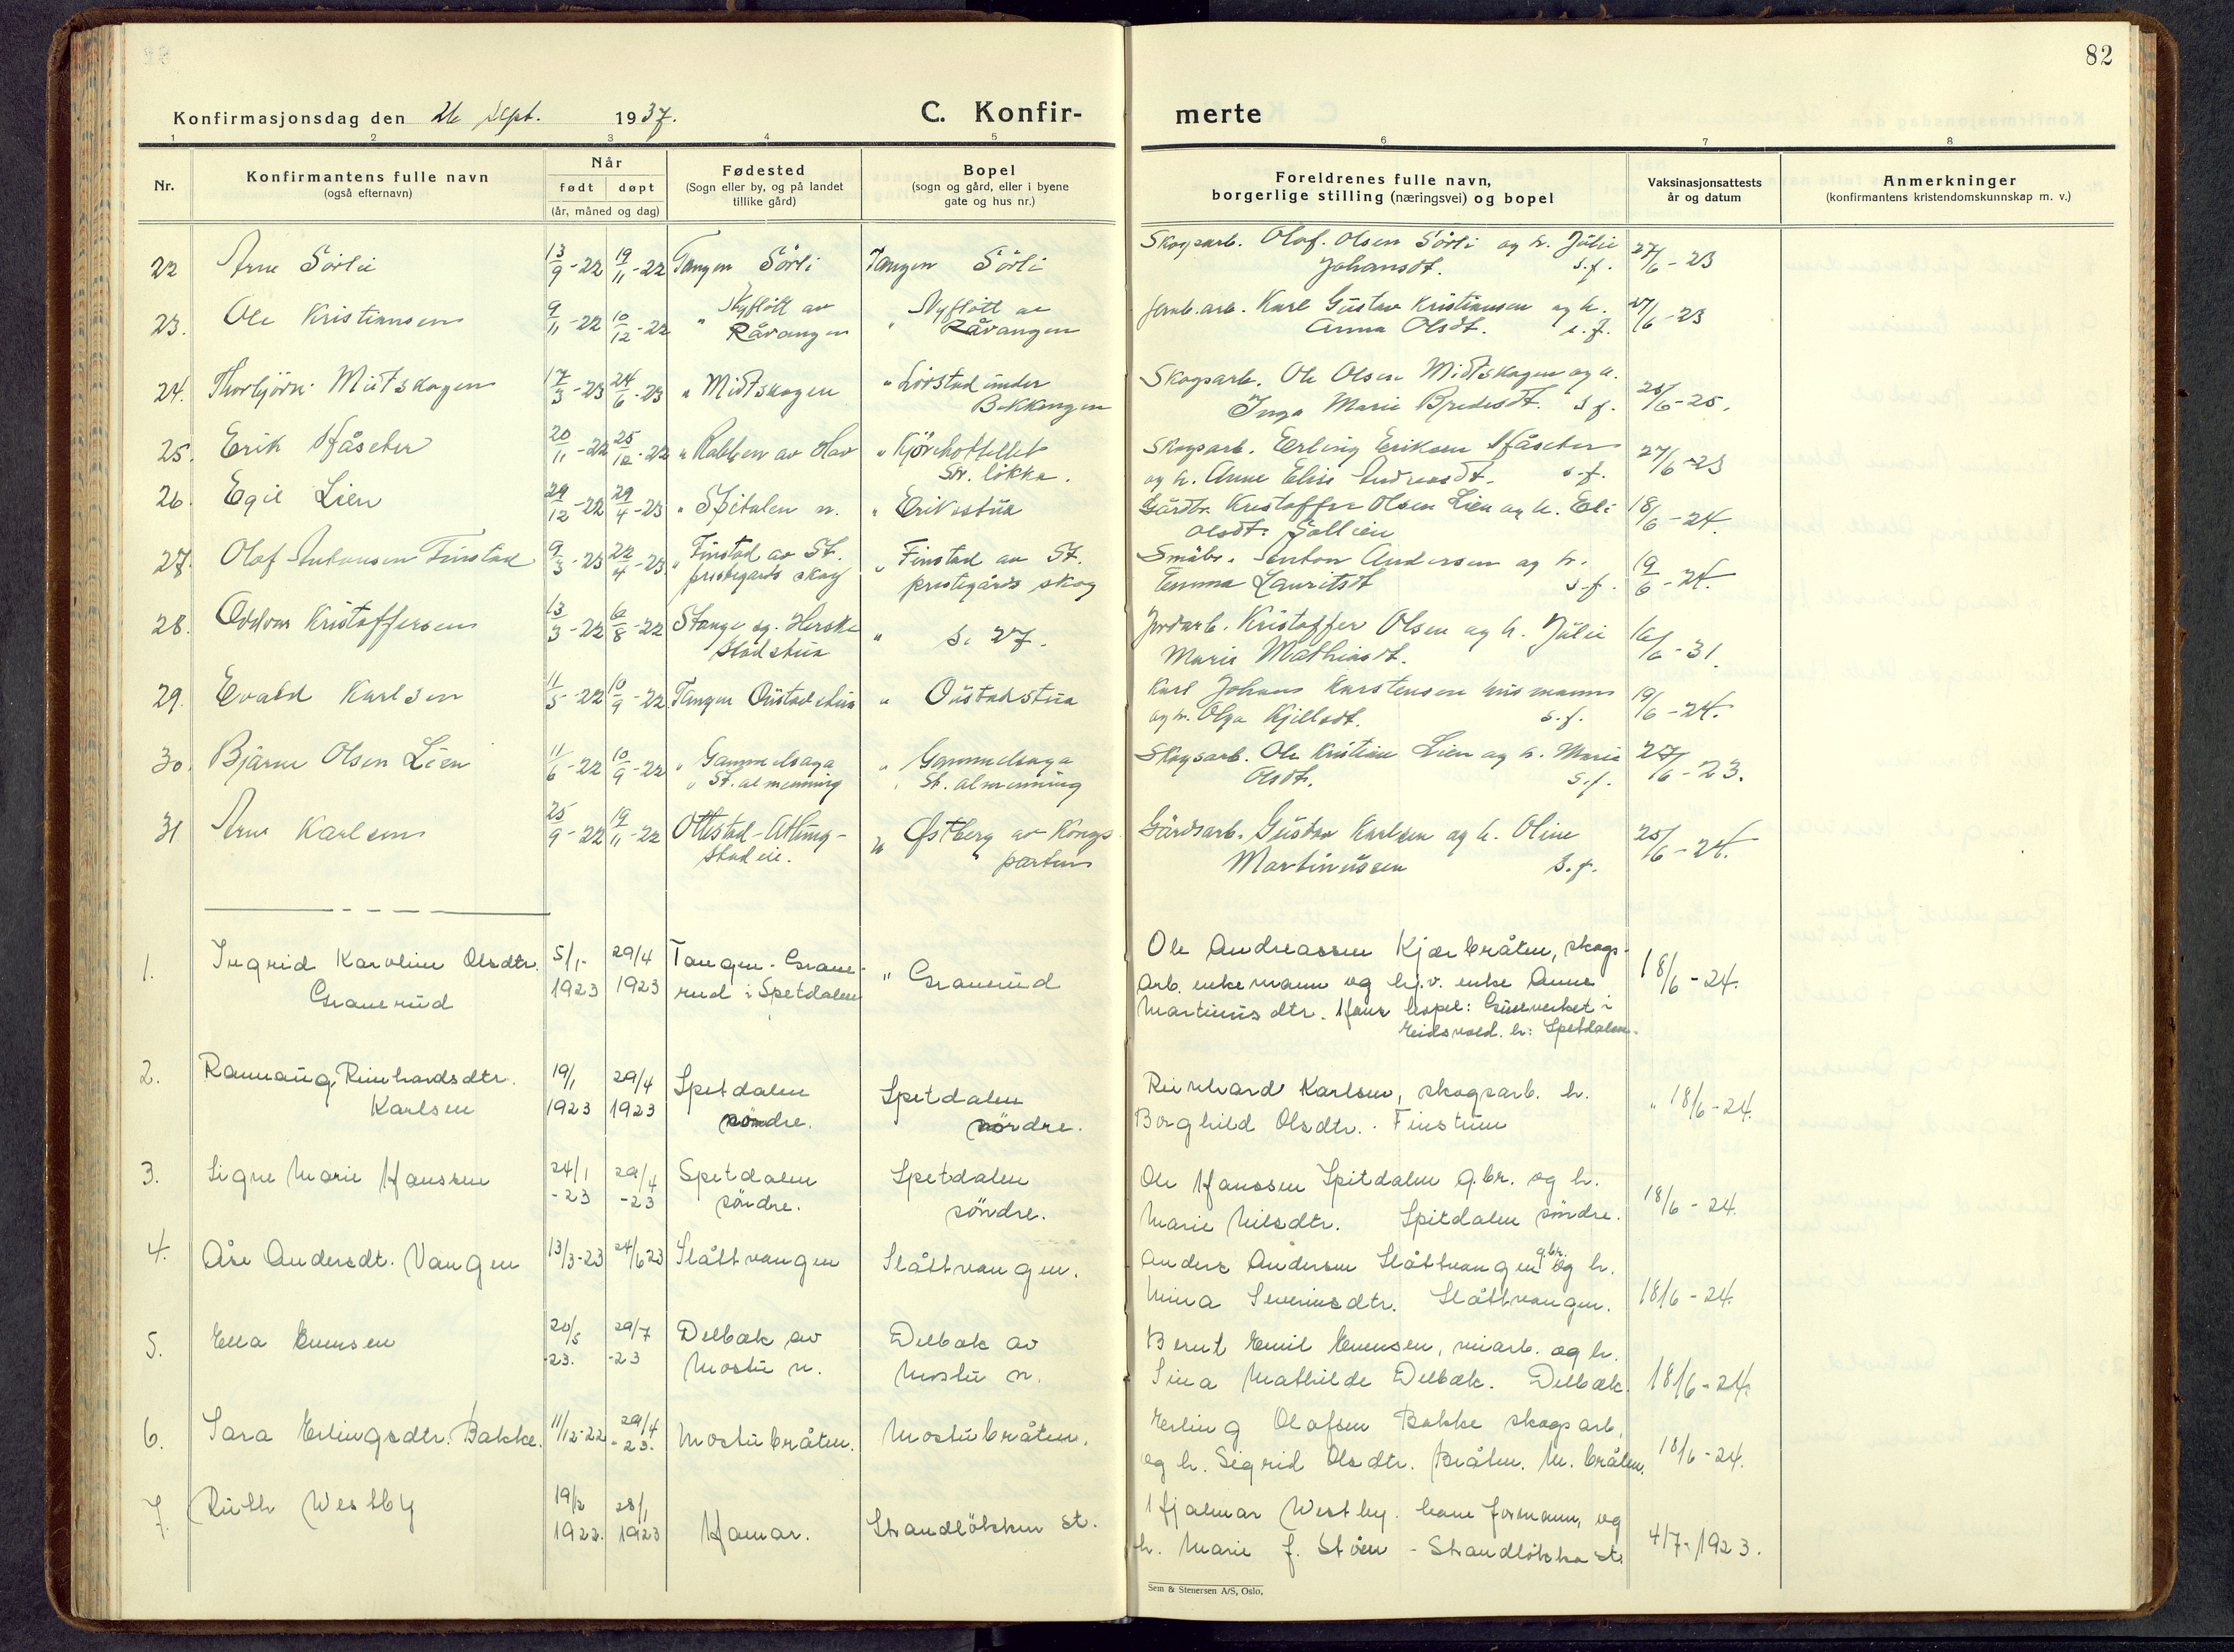 82
Konfirmasjonsdag den 26 Sept. 1937.
C. Konfir-
merte
1 2 3 4 5 6 7 8
Nr.
Konfirmantens fulle navn
(også efternavn)
Når
født døpt
(år, måned og dag)
Fødested
(Sogn eller by, og på landet
tillike gård)
Bopel
(sogn og gård, eller i byene
gate og hus nr.)
Foreldrenes fulle navn,
borgerlige stilling (næringsvei) og bopel
Vaksinasjonsattests
år og datum
Anmerkninger
(konfirmantens kristendomskunnskap m. v.)
22 Arne Sörlie 13/9-22 19/11-22 Tangen Sörli Tangen Sörli Skogsarb. Olaf Olsen Sörli og h. Julie
Johansdt. s.f. 27/6-23
23. Ole Kristiansen 9/11-22 10/12-22 " Nyflött av " Nyflött av Jernb.arb. Karl Gustav Kristiansen og h. 27/6-23
Råvangen Råvangen Anna Olsdt. s.f.
24. Thorbjörn Midtskogen 17/3-23 24/6-23 " Midtskogen " Lövstad under Skogsarb. Ole Olsen Midtskogen og h.
Bekkengen Inga Marie Bredesdt. s.f. 28/6-25.
25. Erik Håseter 20/11-22 25/12-22 " Rabben av Hov " Kjörkottellet Skogsarb. Erling Eriksen Håseter 27/6-23
Str. lökka. og h. Anne Elise Andreasdt. s.f.
26. Egil Lien 29/12-22 29/4-23 " Spitalen n. " Erikstua Gårdbr. Kristoffer Olsen Lien og h. Eli 18/6-24.
Olsdt. Sollien
27. Olaf Antonsen Finstad 9/3-23 22/4-23 " Finstad av St. " Finstad av St. Småbr. Anton Andersen og h. 19/6-24.
prestegårds skog prestegårds skog Emma Lauritsdt s.f.
28. Oddvar Kristoffersen 13/3-22 6/8-22 Stange sg. Herske " s. 27. Jordarb. Kristoffer Olsen og h. Julie 16/6-31.
stadstua Marie Mathiasdt.
29. Evald Karlsen 11/5-22 10/9-22 Tangen Oustadstua " Oustadstua Karl Johans Karstensen husmann 19/6-24.
og h. Olga Kjellsdt. s.f.
30. Bjarne Olsen Lien 11/6-22 10/9-22 " Gammelsaga " Gammelsaga Skogsarb. Ole Kristian Lien og h. Marie 27/6-23.
" St. almenning " St. almenning Olsdt. s.f.
31 Arne Karlsen 25/9-22 19/11-22 Ottestad-Atlung- " Østberg av Kongs Gårdsarb. Gustav Karlsen og h. Oline 25/6-24.
stadeie. parten Martinussen s.f.
1. Ingrid Karoline Olsdtr. 5/1- 29/4 Tangen. Grane- " Granerud Ole Andreassen Kjærbråten, skogs-
Granerud 1923 1923 rud i Spetdalen arb. enkemann og h.v. enke Anne 18/6-24.
Martinusdtr. Hans bopel: Gullverket i
Eidsvold. h: Spetdalen.
2. Rannaug Reinhardsdtr. 19/1 29/4 Spetdalen Spetdalen Reinhard Karlsen, skogsarb. h. " 18/6-24.
Karlsen 1923 1923 søndre. nördre. Borghild Olsdtr. Finstuen
3. Signe Marie Hanssen 24/1 29/4 Spetdalen Spetdalen Ole Hanssen Spitdalen g.br. og h. 18/6-24.
-23 -23 söndre. söndre. Marie Nilsdtr. Spitdalen söndre.
4. Åse Andersdt. Vangen 13/3-23 24/6 23 Slåttvangen Slåttvangen. Anders Andersen Slåttvangen g.br. og h.
Mina Severinsdtr. Slåttvangen. 18/6-24.
5. Ella Evensen 20/5 29/7 Delbæk av Delbæk av Bernt Emil Evensen, viarb. og h.
-23. -23 Mostu n. Mostu n. Sina Mathilde Delbæk. Delbæk. 18/6-24
6. Sara Erlingsdtr. Bakke. 11/12-22 29/4 -23. Mostubråten. Mostubråten. Erling Olafsen Bakke skogsarb,
og h. Sigrid Olsdtr. Bråten. M. bråten. 18/6-24.
7. Ruth Westby 19/12 28/1 Hamar. Strandlökken st. Hjalmar Westby. bane formann, og
1922. 1923 h. Marie f. Stöen - Strandlökka st. 4/7-1923.
Sem & Stenersen A/S, Oslo,